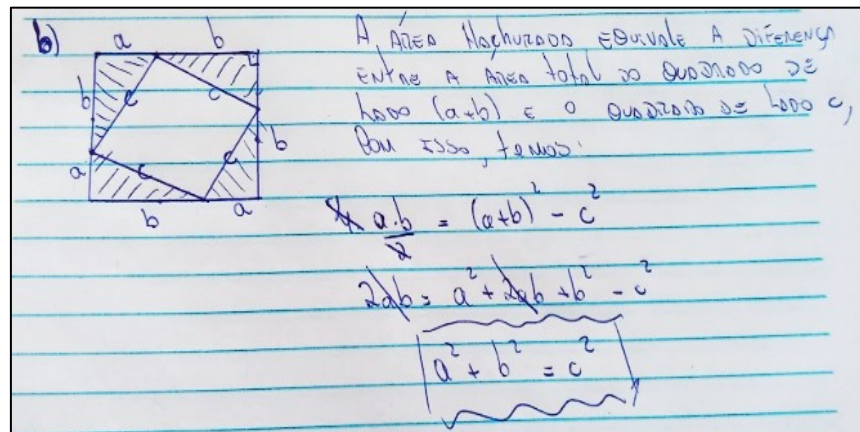 b)
a b
b c c
a c c b
b a
A ÁREA HACHURADA EQUIVALE A DIFERENÇA
ENTRE A ÁREA total DO QUADRADO DE
LADO (a+b) E O QUADRADO DE LADO c,
COM ISSO, temos:
4 a.b/2 = (a+b)² - c²
2ab = a² + 2ab + b² - c²
a² + b² = c²